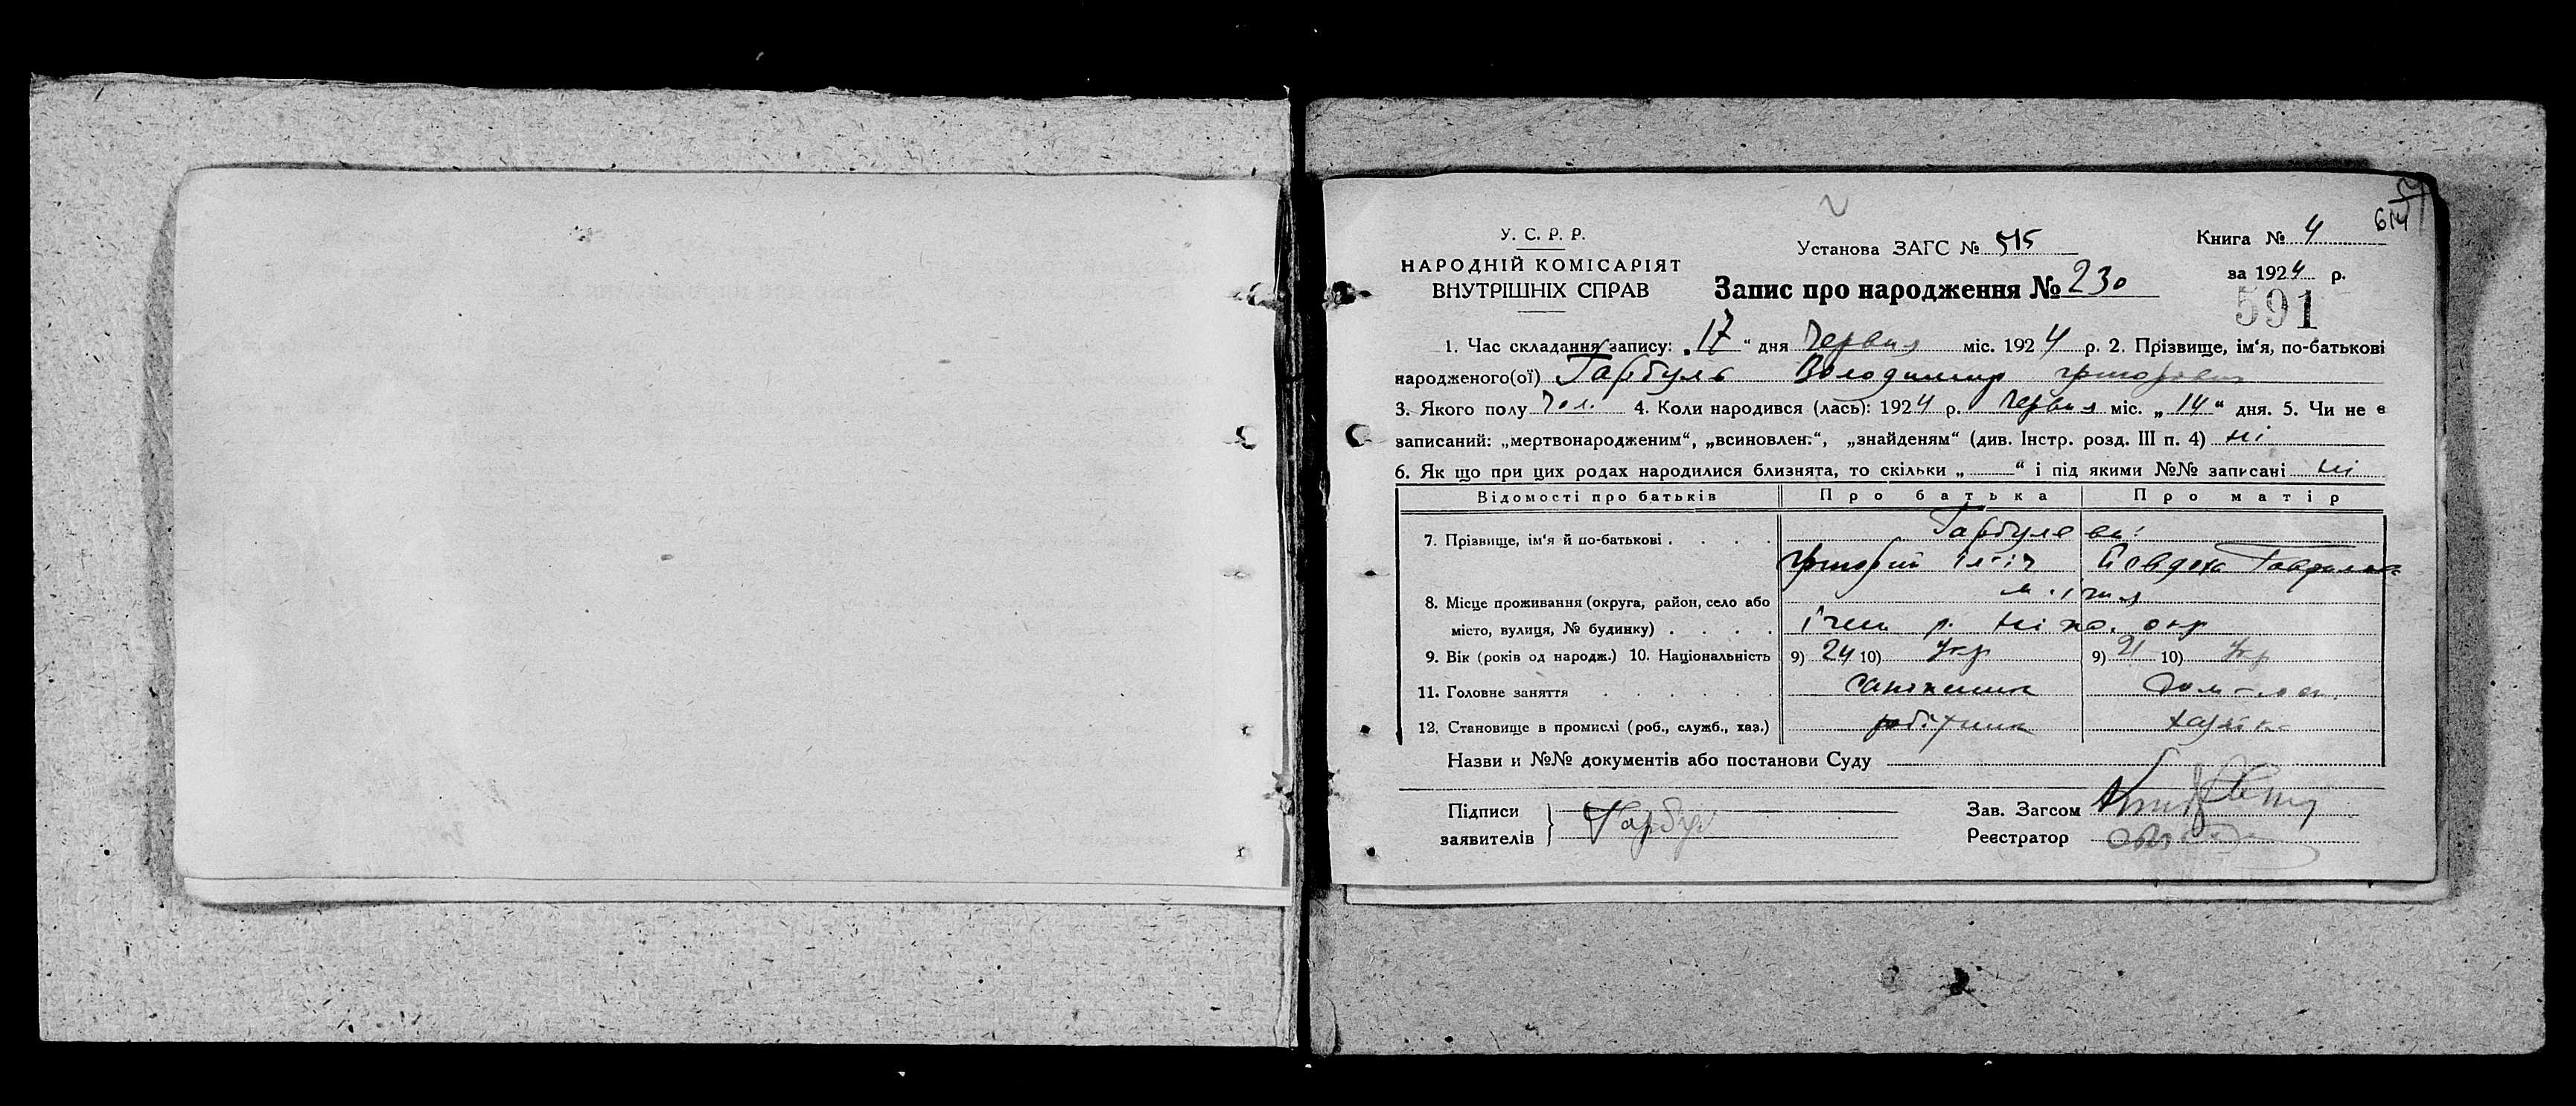 614
У. С. Р. Р.
НАРОДНІЙ КОМІСАРІЯТ
ВНУТРІШНІХ СПРАВ
Установа ЗАГС № 515
Книга № 4
за 1924 р.
Запис про народження № 230
591
1. Час складання запису: „17“ дня Червня міс. 1924 р. 2. Прізвище, ім‘я, по-батькові
народженого(ої) Гарбузь Володимир Григорович
3. Якого полу чол. 4. Коли народився (лась): 1924 р. Червня міс. „14“ дня. 5. Чи не є
записаний: „мертвонародженим“, „всиновлен.“, „знайденям“ (див. Інстр. розд. III п. 4) ні
6. Як що при цих родах народилися близнята, то скільки „ “ і під якими №№ записані ні
Відомості про батьків Про батька Про матір
7. Прізвище, ім‘я й по-батькові . . . .
Григорій Ілліч Євдоха Гаврилов
8. Місце проживання (округа, район, село або
м. Ічня
місто, вулиця, № будинку) . . . . Ічен р. Ніж. окр
9. Вік (років од народж.) 10. Національність 9) 24 10) Укр 9) 21 10) Укр
11. Головне заняття . . . . . .
12. Становище в промислі (роб., служб., хаз.) робітник хазяйка
Назви и №№ документів або постанови Суду
Підписи
заявителів
Зав. Загсом
Реєстратор